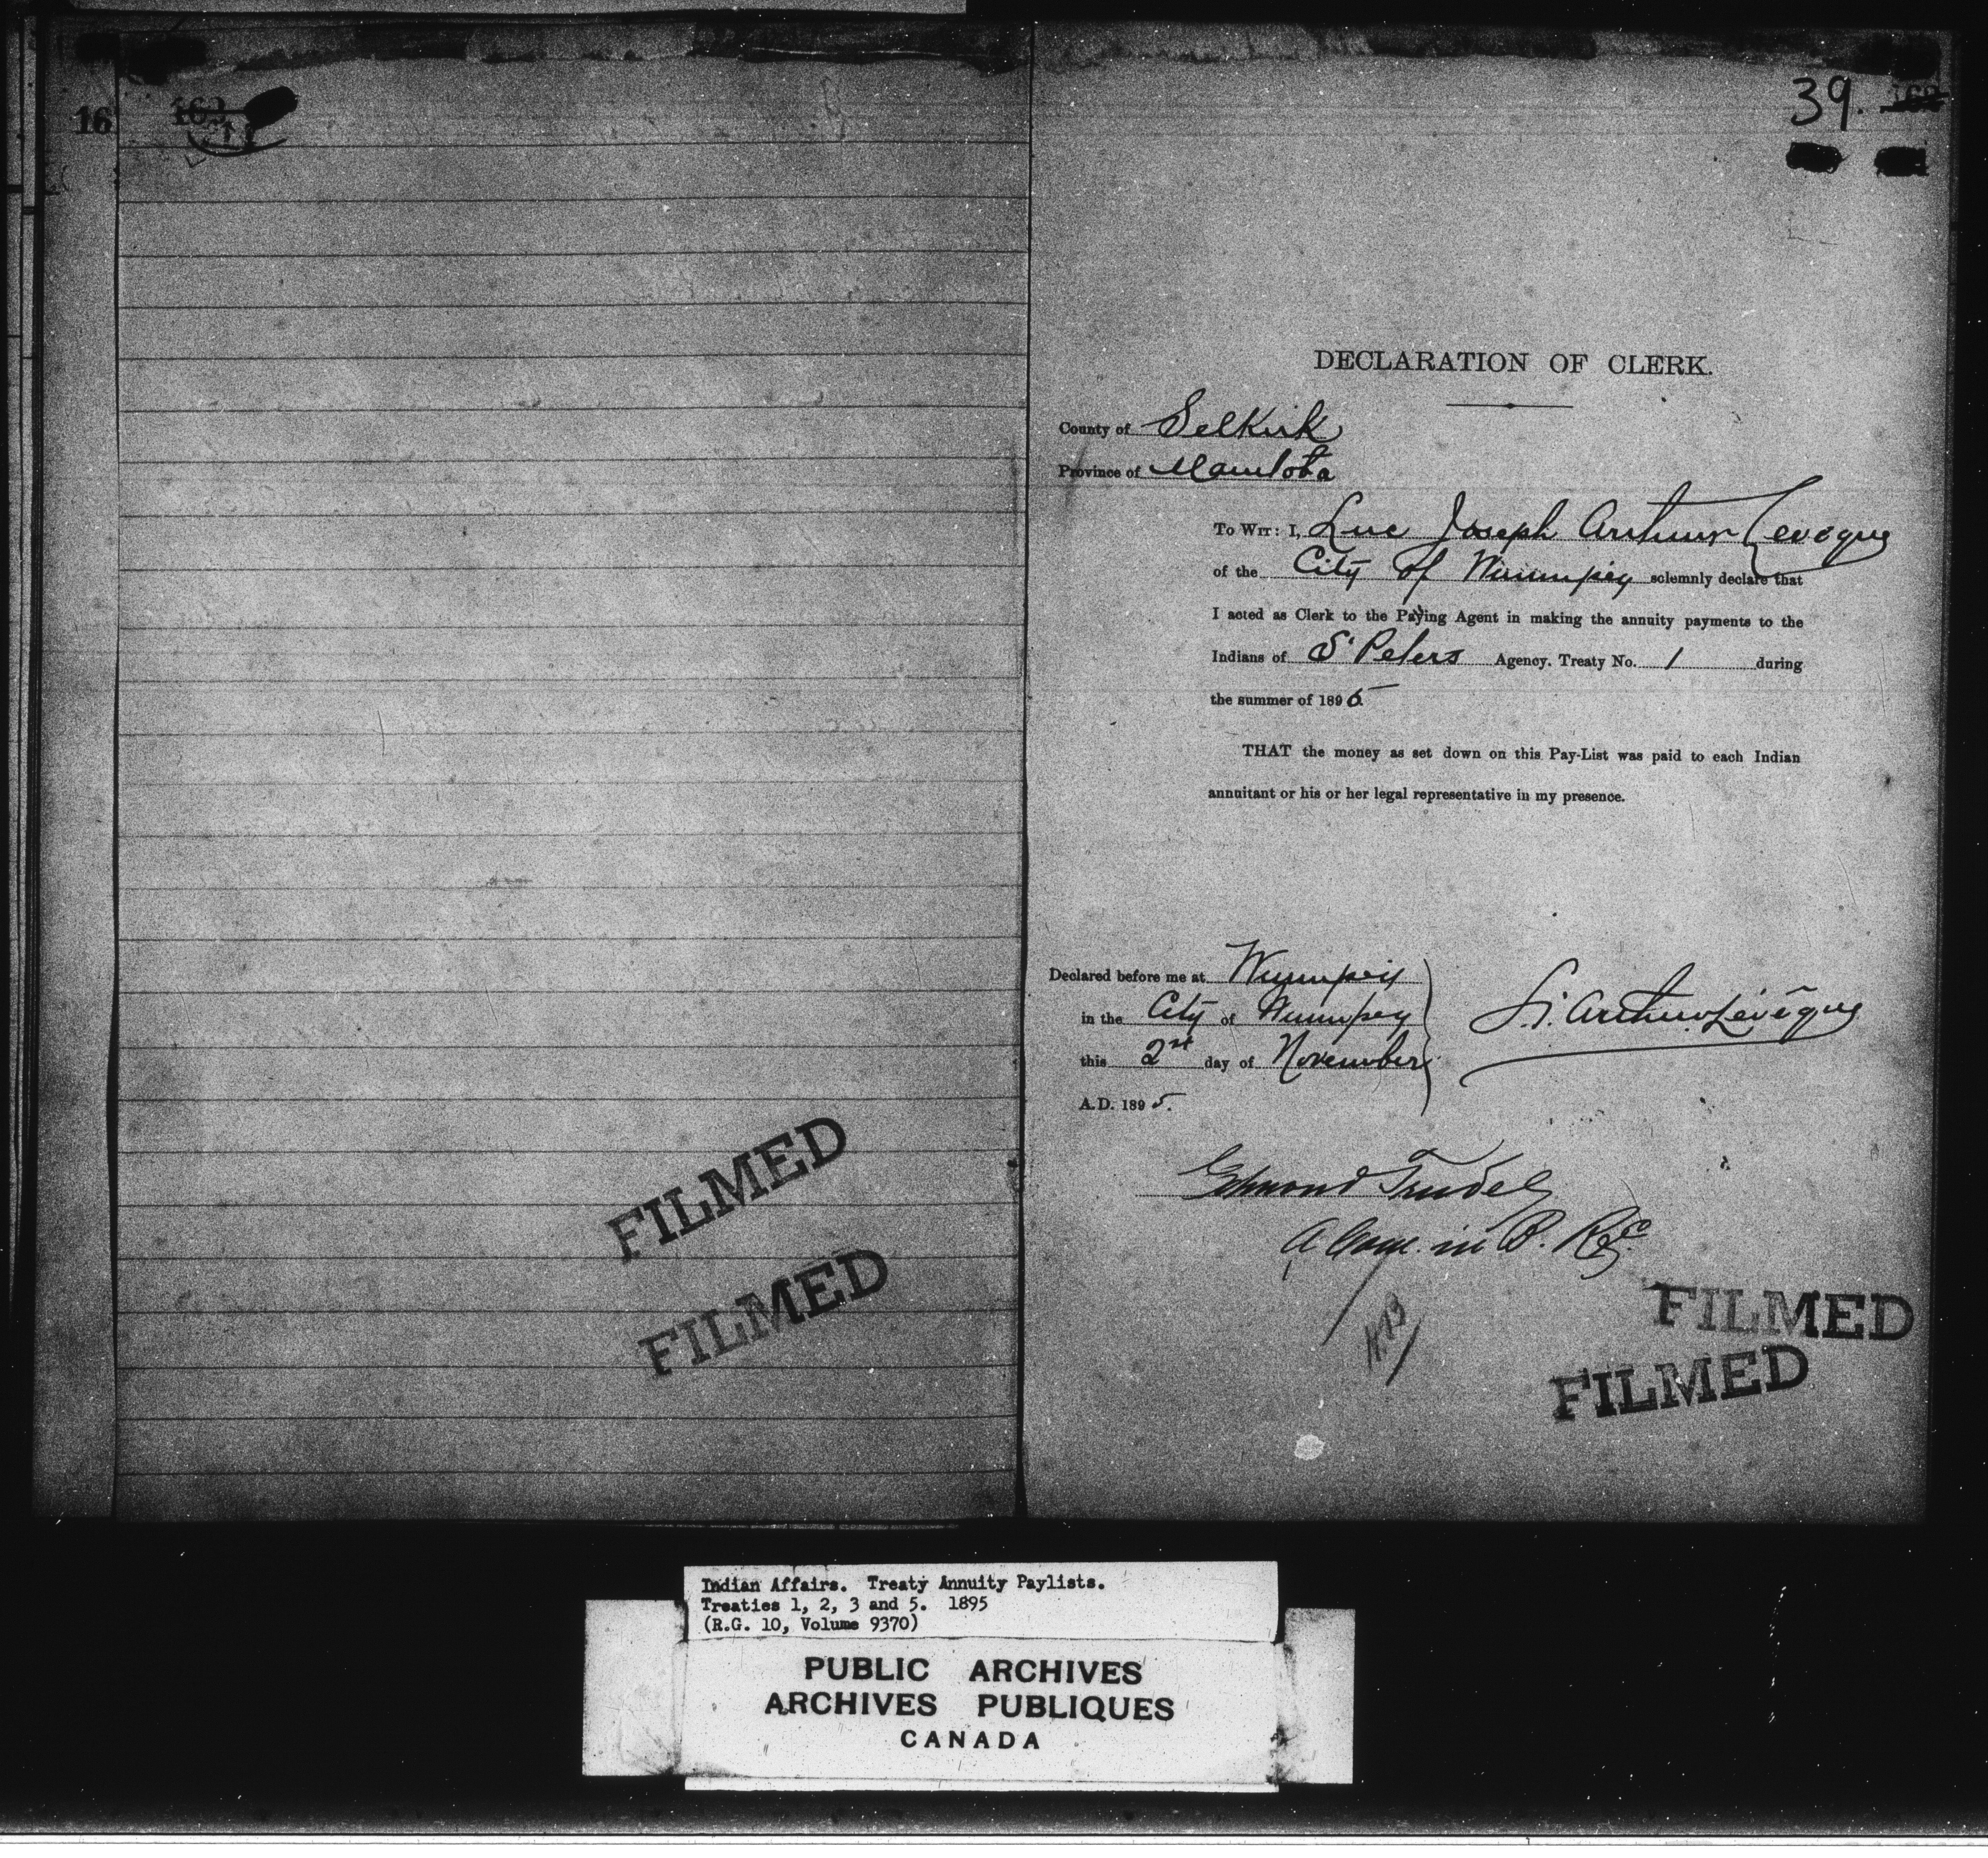 16
163
39.
DECLARATION OF CLERK.
County of Selkirk
Province of Manitoba
To Wit: I, Luc Joseph Arthur Leveque
of the City of Winnipeg solemnly declare that
I acted as Clerk to the Paying Agent in making the annuity payments to the
Indians of St Peters Agency. Treaty No. 1 during
the summer of 1895
THAT the money as set down on this Pay-List was paid to each Indian
annuitant or his or her legal representative in my presence.
Declared before me at Winnipeg
in the City of Winnipeg
this 2nd day of November
A.D. 1895.
L. J. Arthur Lévêque
Edmond Trudel
A Com. in B. R. &c
FILMED
FILMED
FILMED
FILMED
Indian Affairs. Treaty Annuity Paylists.
Treaties 1, 2, 3 and 5. 1895
(R.G. 10, Volume 9370)
PUBLIC ARCHIVES
ARCHIVES PUBLIQUES
CANADA